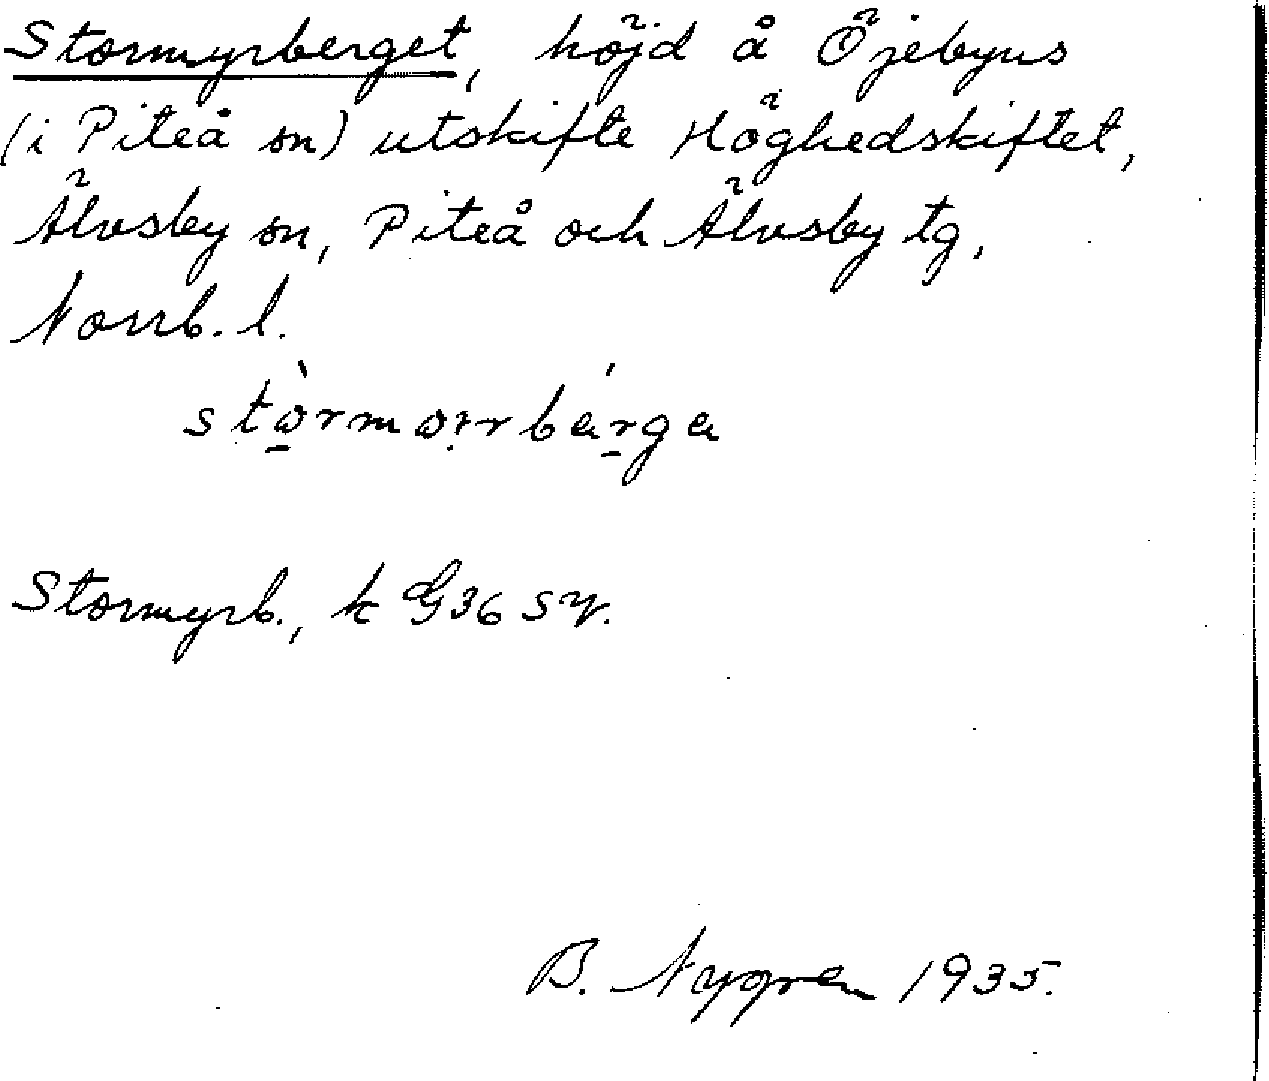 Stormyrberget, höjd å Öjebyns
(i Piteå sn) utskifte Höghedskiftet,
Älvsby sn, Piteå och Älvsby tg,
Norrb. l.
Stormyrb., k G36 sv.
B. Nygren 1935.